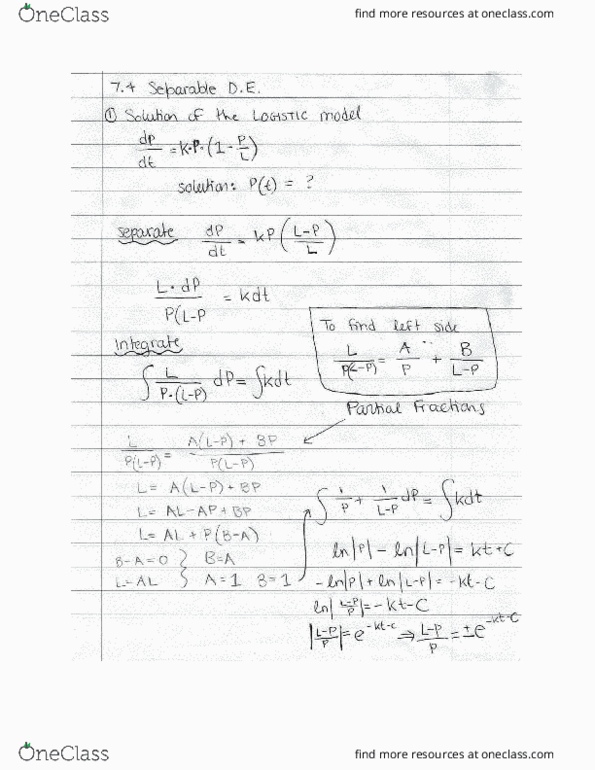 OneClass
find more resources at oneclass.com
7.4 Separable D.E.
① Solution of the LOGISTIC model
dP/dt = k·P·(1 - P/L)
solution: P(t) = ?
separate dP/dt = kP (L-P/L)
L·dP/P(L-P = kdt
To find left side
L/P(L-P) = A/P + B/L-P
Integrate
∫ L/P·(L-P) dP = ∫kdt
Partial Fractions
L/P(L-P) = A(L-P) + BP/P(L-P)
L = A(L-P) + BP
L = AL - AP + BP
L = AL + P(B-A)
B-A=0 } B=A
L=AL } A=1 B=1
∫ 1/P + 1/L-P dP = ∫kdt
ln|P| - ln|L-P| = kt+C
-ln|P| + ln|L-P| = -kt-C
ln|L-P/P| = -kt-C
|L-P/P| = e^-kt-c ⇒ L-P/P = ±e^-kt-C
OneClass
find more resources at oneclass.com